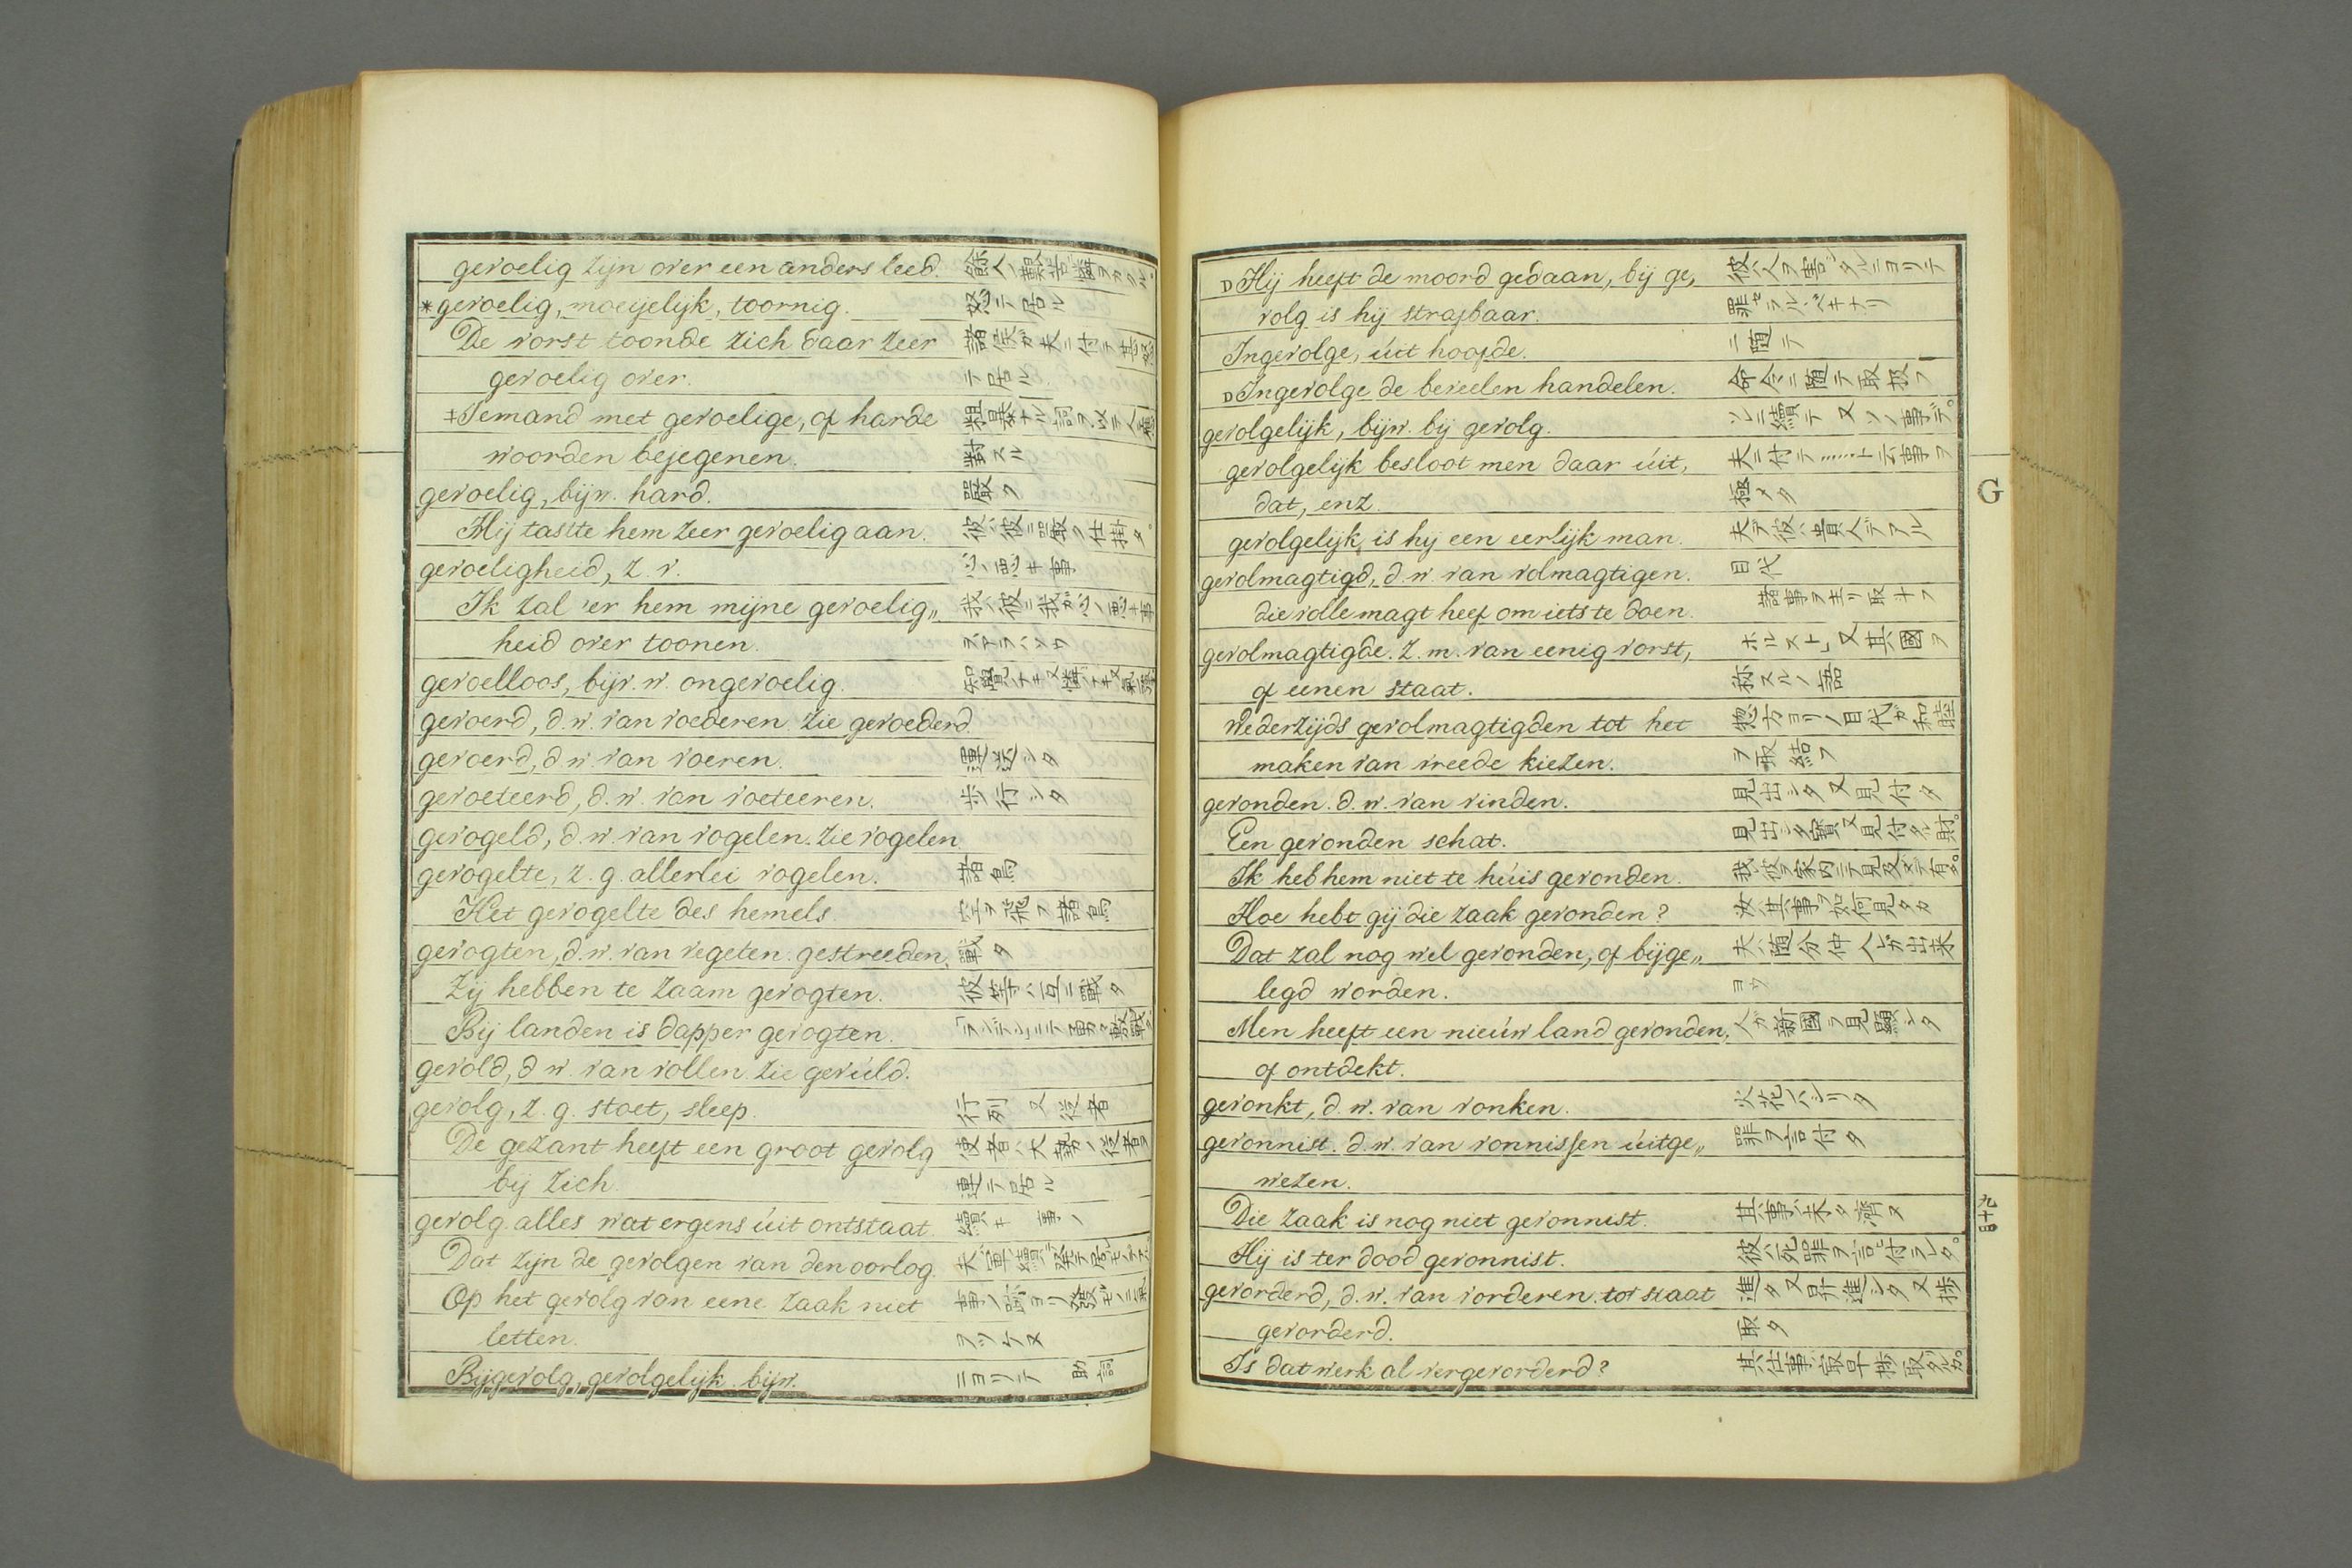 gevoelig zijn over een anders leed. 餘人ノ艱苦憐ヲカクル。
*gevoelig, moeijelijk, toornig. 怒テ居ル
De vorst toonde zich daar zeer 諸侯ガ夫ニ付テ甚怒
gevoelig over. テ居ル
‡Iemand met gevoelige, of harde 粗暴ナル詞ヲ以テ人應
woorden bejegenen. 對スル
gevoelig, bijw. hard. 嚴ク
Hij tastte hem zeer gevoelig aan. 彼ハ彼ニ嚴ク仕掛タ。
gevoeligheid, z. v. 心ノ悪キ事
Ik zal 'er hem mijne gevoelig„ 我ハ彼ニ我ガ心ノ悪キ事
heid over toonen.
gevoelloos, bijv. w. ongevoelig.
gevoerd, d. w. van voederen. zie gevoederd.
gevoerd, d. w. van voeren. 運送シタ
gevoeteerd, d. w. van voeteeren. 歩行シタ
gevogeld, d. w. van vogelen. zie vogelen.
gevogelte, z. g. allerlei vogelen. 諸鳥
Het gevogelte des hemels. 空ヲ飛フ諸鳥
gevogten, d. w. van vegeten. gestreeden, 戰タ
Zij hebben te zaam gevogten. 彼等ハ互ニ戰タ
Bij landen is dapper gevogten.
gevold, d w. van vollen. zie gevúld.
gevolg, z. g. stoet, sleep. 行列 又 従者
De gezant heeft een groot gevolg 使者ハ大勢ノ従者ヲ
bij zich. 連テ居ル
gevolg. alles wat ergens úit ontstaat. 續キ 事ノ
Dat zijn de gevolgen van den oorlog.
Op het gevolg van eene zaak niet
letten. ヲツケヌ
Bijgevolg, gevolgelijk. bijw. ニヨリテ 助詞
D Hij heeft de moord gedaan, bij ge, 彼ハ人ヲ害シタルニヨリテ
volg is hij strafbaar. 罪セラルベキナリ
Ingevolge, úit hoofde. ニ随テ
D Ingevolge de beveelen handelen. 命令ニ随テ取扱フ
gevolgelijk, bijw. bij gevolg. ソレニ續テ 又 ソノ事デ。
gevolgelijk besloot men daar úit, 夫ニ付テ……ト云事ヲ
dat, enz. 極メタ
gevolgelijk, is hij een eerlijk man. 夫デ彼ハ貴人デアル
gevolmagtigd, d. w. van volmagtigen. 目代
die volle magt heef om iets te doen. 諸事ヲ主リ取斗フ
gevolmagtigde. z. m. van eenig vorst, ホルスト 又 其國ヲ
of eenen staat. 称スルノ語
Wederzijds gevolmagtigden tot het 惣方ヨリノ目代ガ和睦
maken van vreede kiezen. ヲ取結フ
gevonden. d. w. van vinden. 見出シタ 又 見付タ
Een gevonden schat. 見出シタ寳 又 見付タル財。
Ik heb hem niet te húis gevonden.
Hoe hebt gij die zaak gevonden? 汝其事ヲ如何見タカ
Dat zal nog wel gevonden, of bijge„ 夫ハ随分仲人ガ出来
legd worden. ヨウ
Men heeft een nieúw land gevonden, 人ガ新國ヲ見顕シタ
of ontdekt.
gevonkt, d. w. van vonken. 火花ハシリタ
gevonnist. d. w. van vonnissen úitge„ 罪ヲ言付タ
wezen.
Die zaak is nog niet gevonnist. 其事ハ未タ濟ヌ
Hij is ter dood gevonnist. 彼ハ死罪ヲ言ヒ付ラレタ。
gevorderd, d. w. van vorderen. tot staat 進タ 又 昇進シタ 又 捗
gevorderd. 取タ
Is dat werk al vergevorderd? 其仕事ハ最早捗取タルカ。
G
九十日